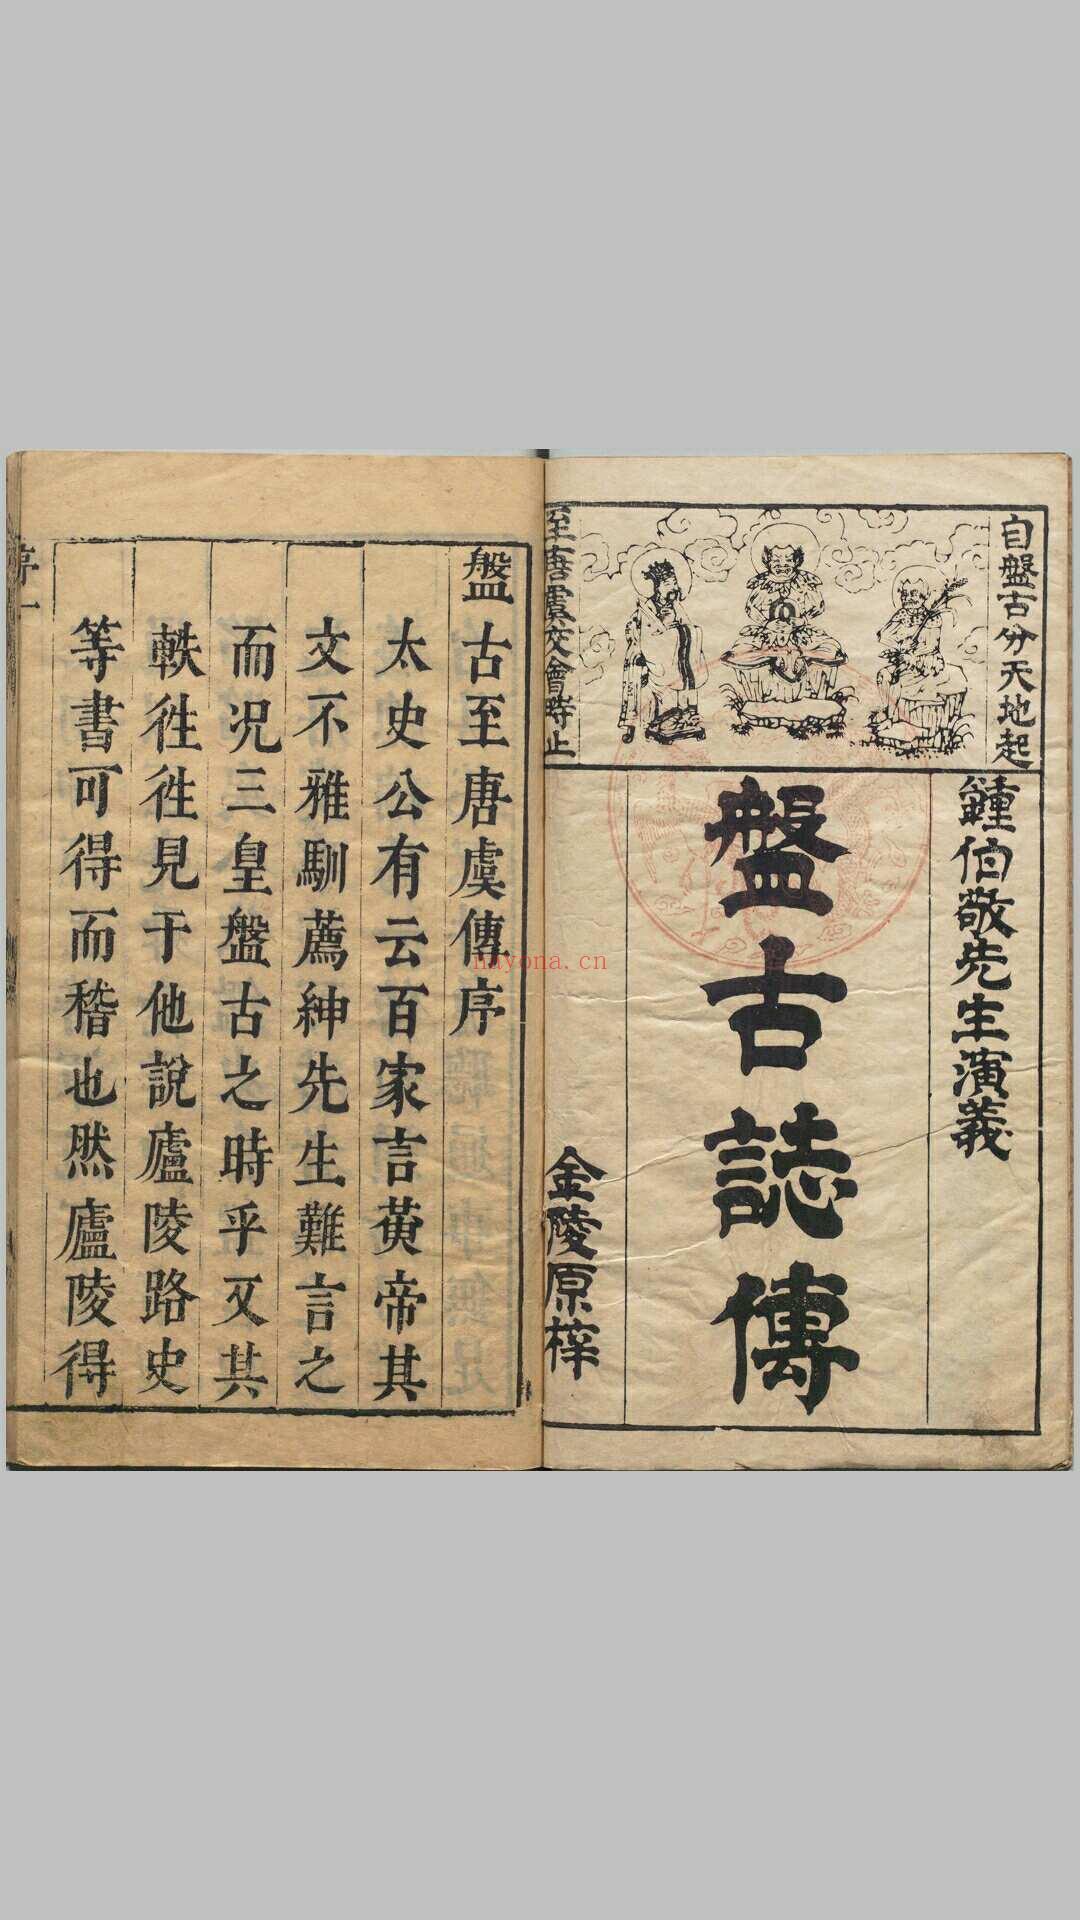 自盤古分天地起
至唐虞交會時止
鍾伯敬先生演義
盤古誌傳
金陵原梓
盤古至唐虞傳序
太史公有云百家言黄帝其
文不雅馴薦紳先生難言之
而况三皇盤古之時乎又其
軼徃徃見于他說廬陵路史
等書可得而稽也然廬陵得
序一
nayona.cn